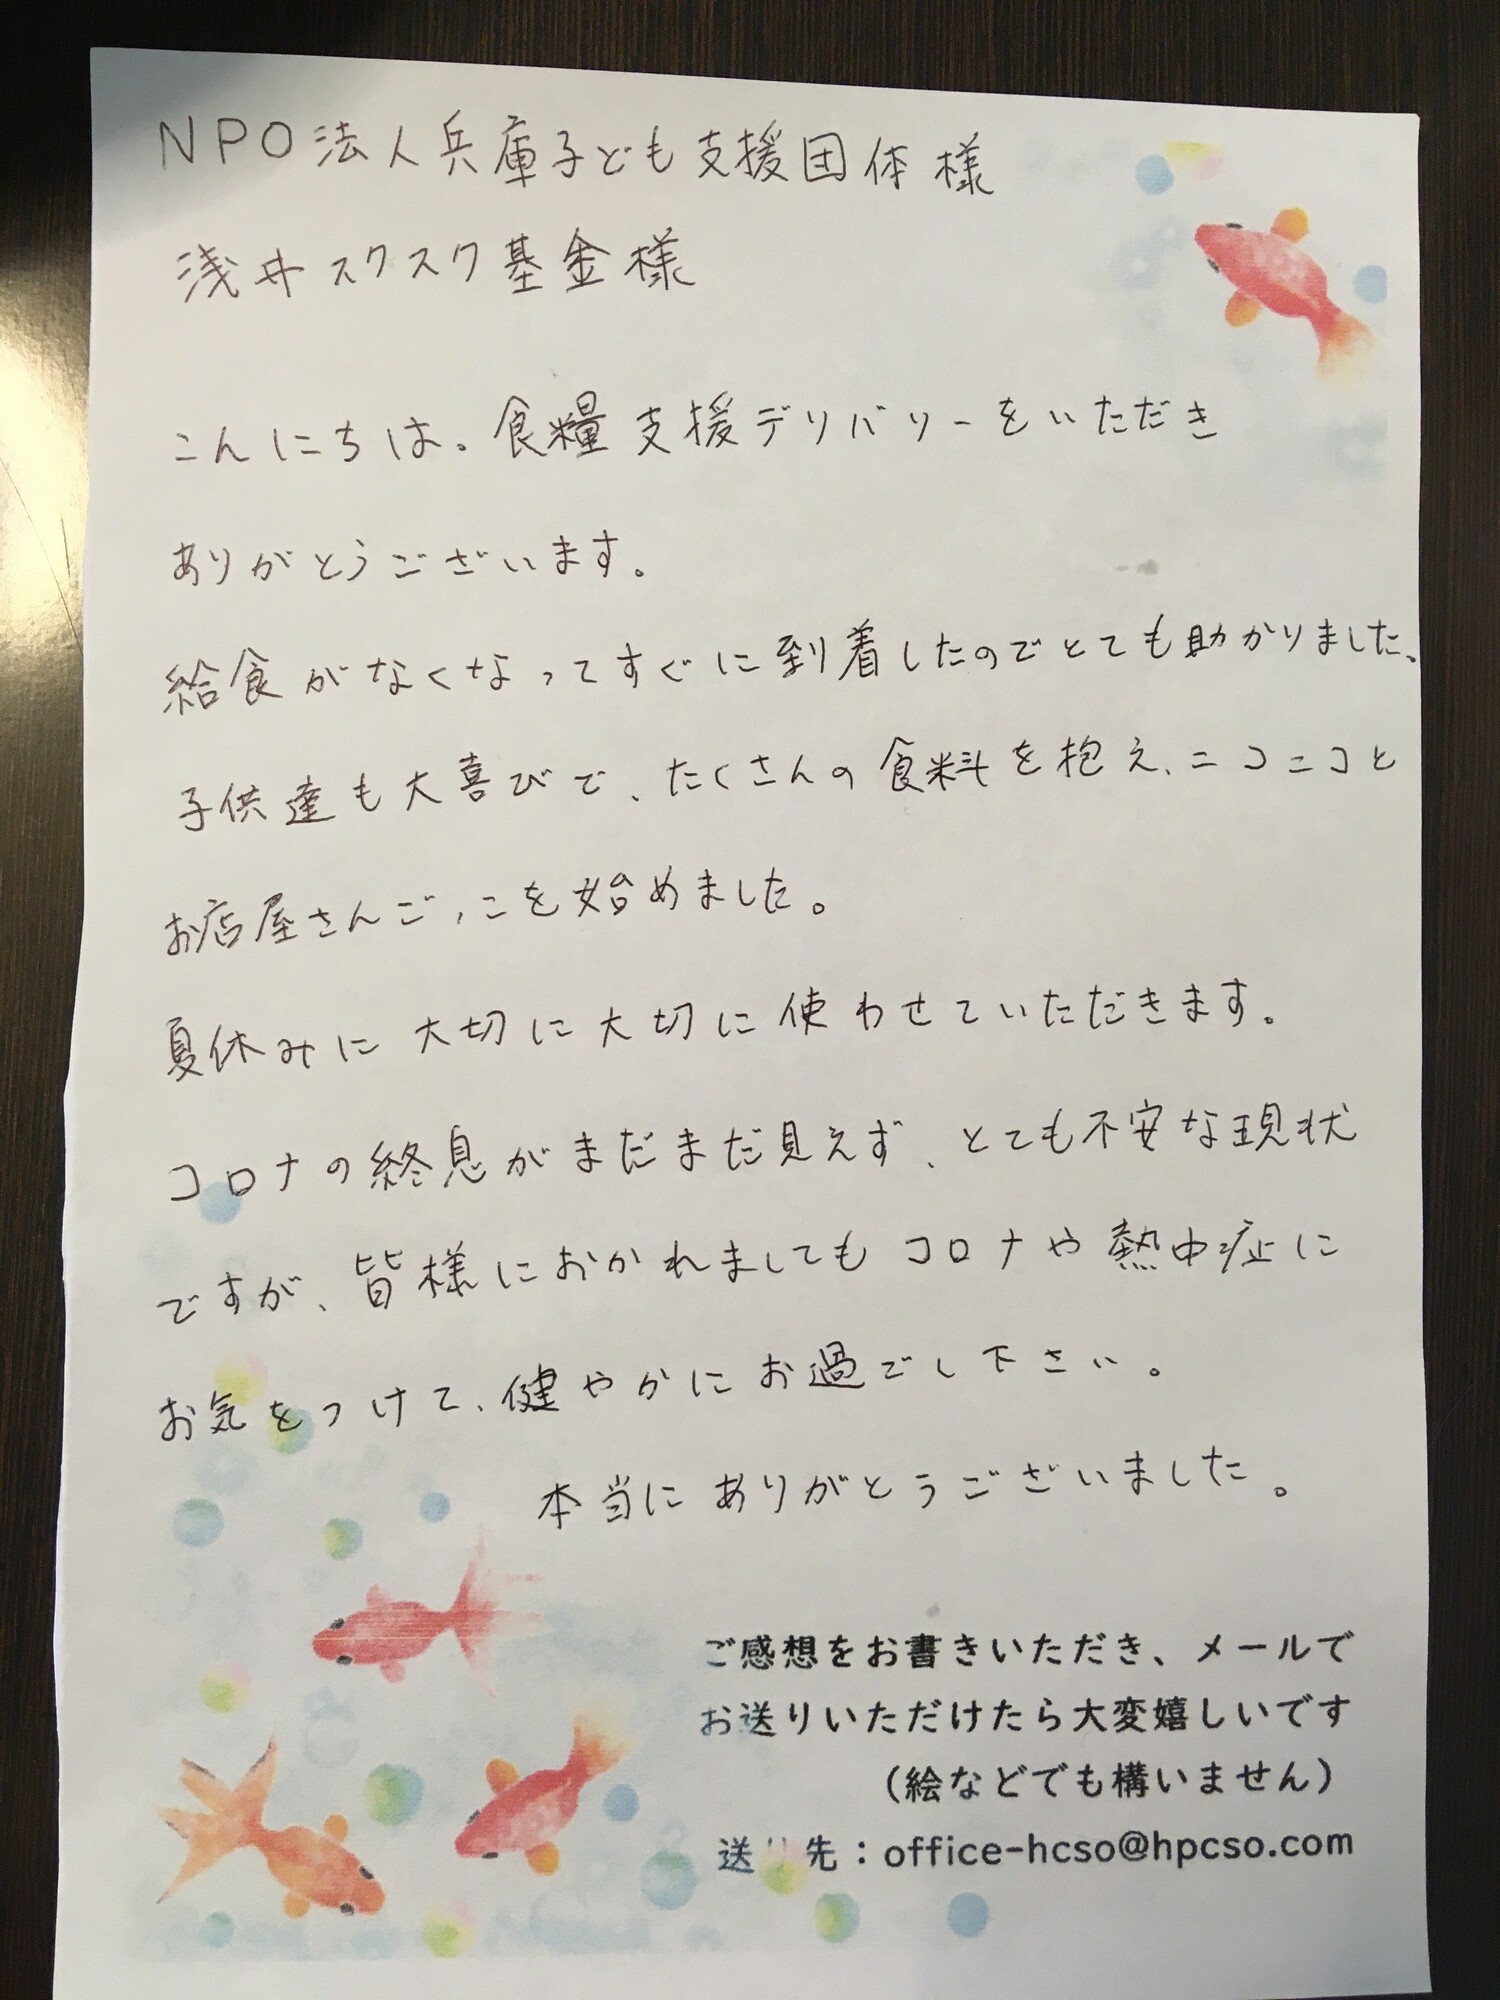 NPO法人兵庫子ども支援団体様
浅井スクスク基金様
こんにちは。食糧支援デリバリーをいただき
ありがとうございます。
給食がなくなってすぐに到着したのでとても助かりました、
子供達も大喜びで、たくさんの食料を抱え、ニコニコと
お店屋さんごっこを始めました。
夏休みに大切に大切に使わせていただきます。
コロナの終息がまだまだ見えず、とても不安な現状
ですが、皆様におかれましてもコロナや熱中症に
お気をつけて、健やかにお過ごし下さい。
本当にありがとうございました。
ご感想をお書きいただき、メールで
お送りいただけたら大変嬉しいです
（絵などでも構いません）
送り先：office-hcso@hpcso.com